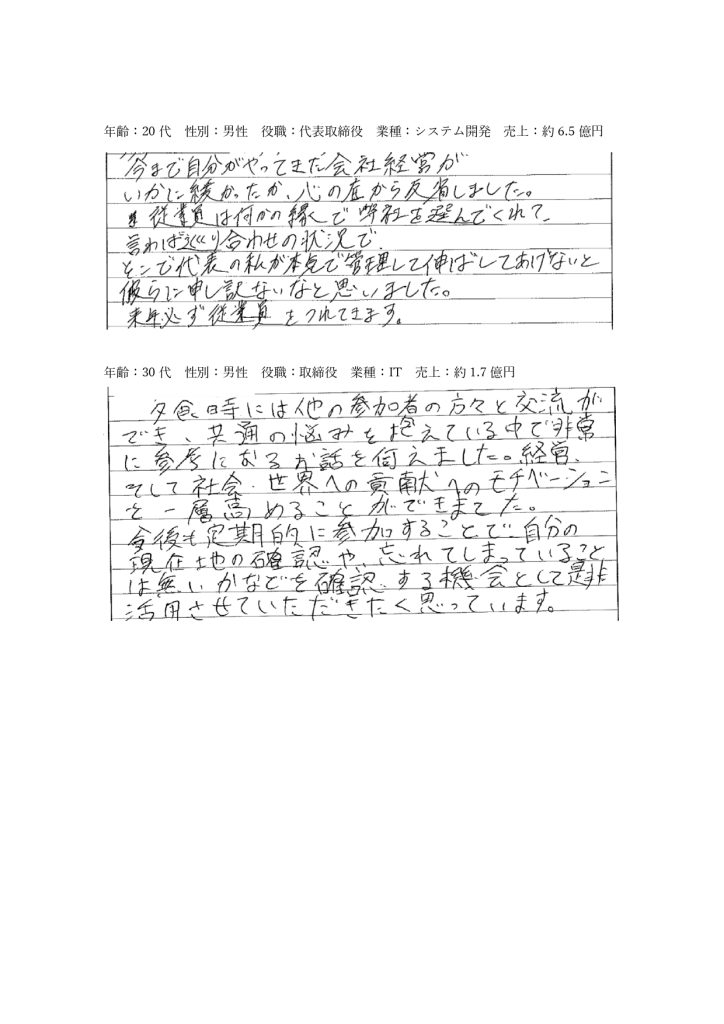 年齢：20代　性別：男性　役職：代表取締役　業種：システム開発　売上：約6.5億円
今まで自分がやってきた会社経営が
いかに緩かったか、心の底から反省しました。
従業員は何かの縁で弊社を選んでくれて、
言わば巡り合わせの状況で、
そこで代表の私が本気で管理して伸ばしてあげないと
彼らに申し訳ないなと思いました。
来年必ず従業員をつれてきます。
年齢：30代　性別：男性　役職：取締役　業種：IT　売上：約1.7億円
夕食時には他の参加者の方々と交流が
でき、共通の悩みを抱えている中で非常
に参考になるお話を伺えました。経営、
そして社会・世界への貢献へのモチベーション
を一層高めることができました。
今後も定期的に参加することで、自分の
現在地の確認や、忘れてしまっていること
は無いかなどを確認する機会として是非
活用させていただきたく思っています。